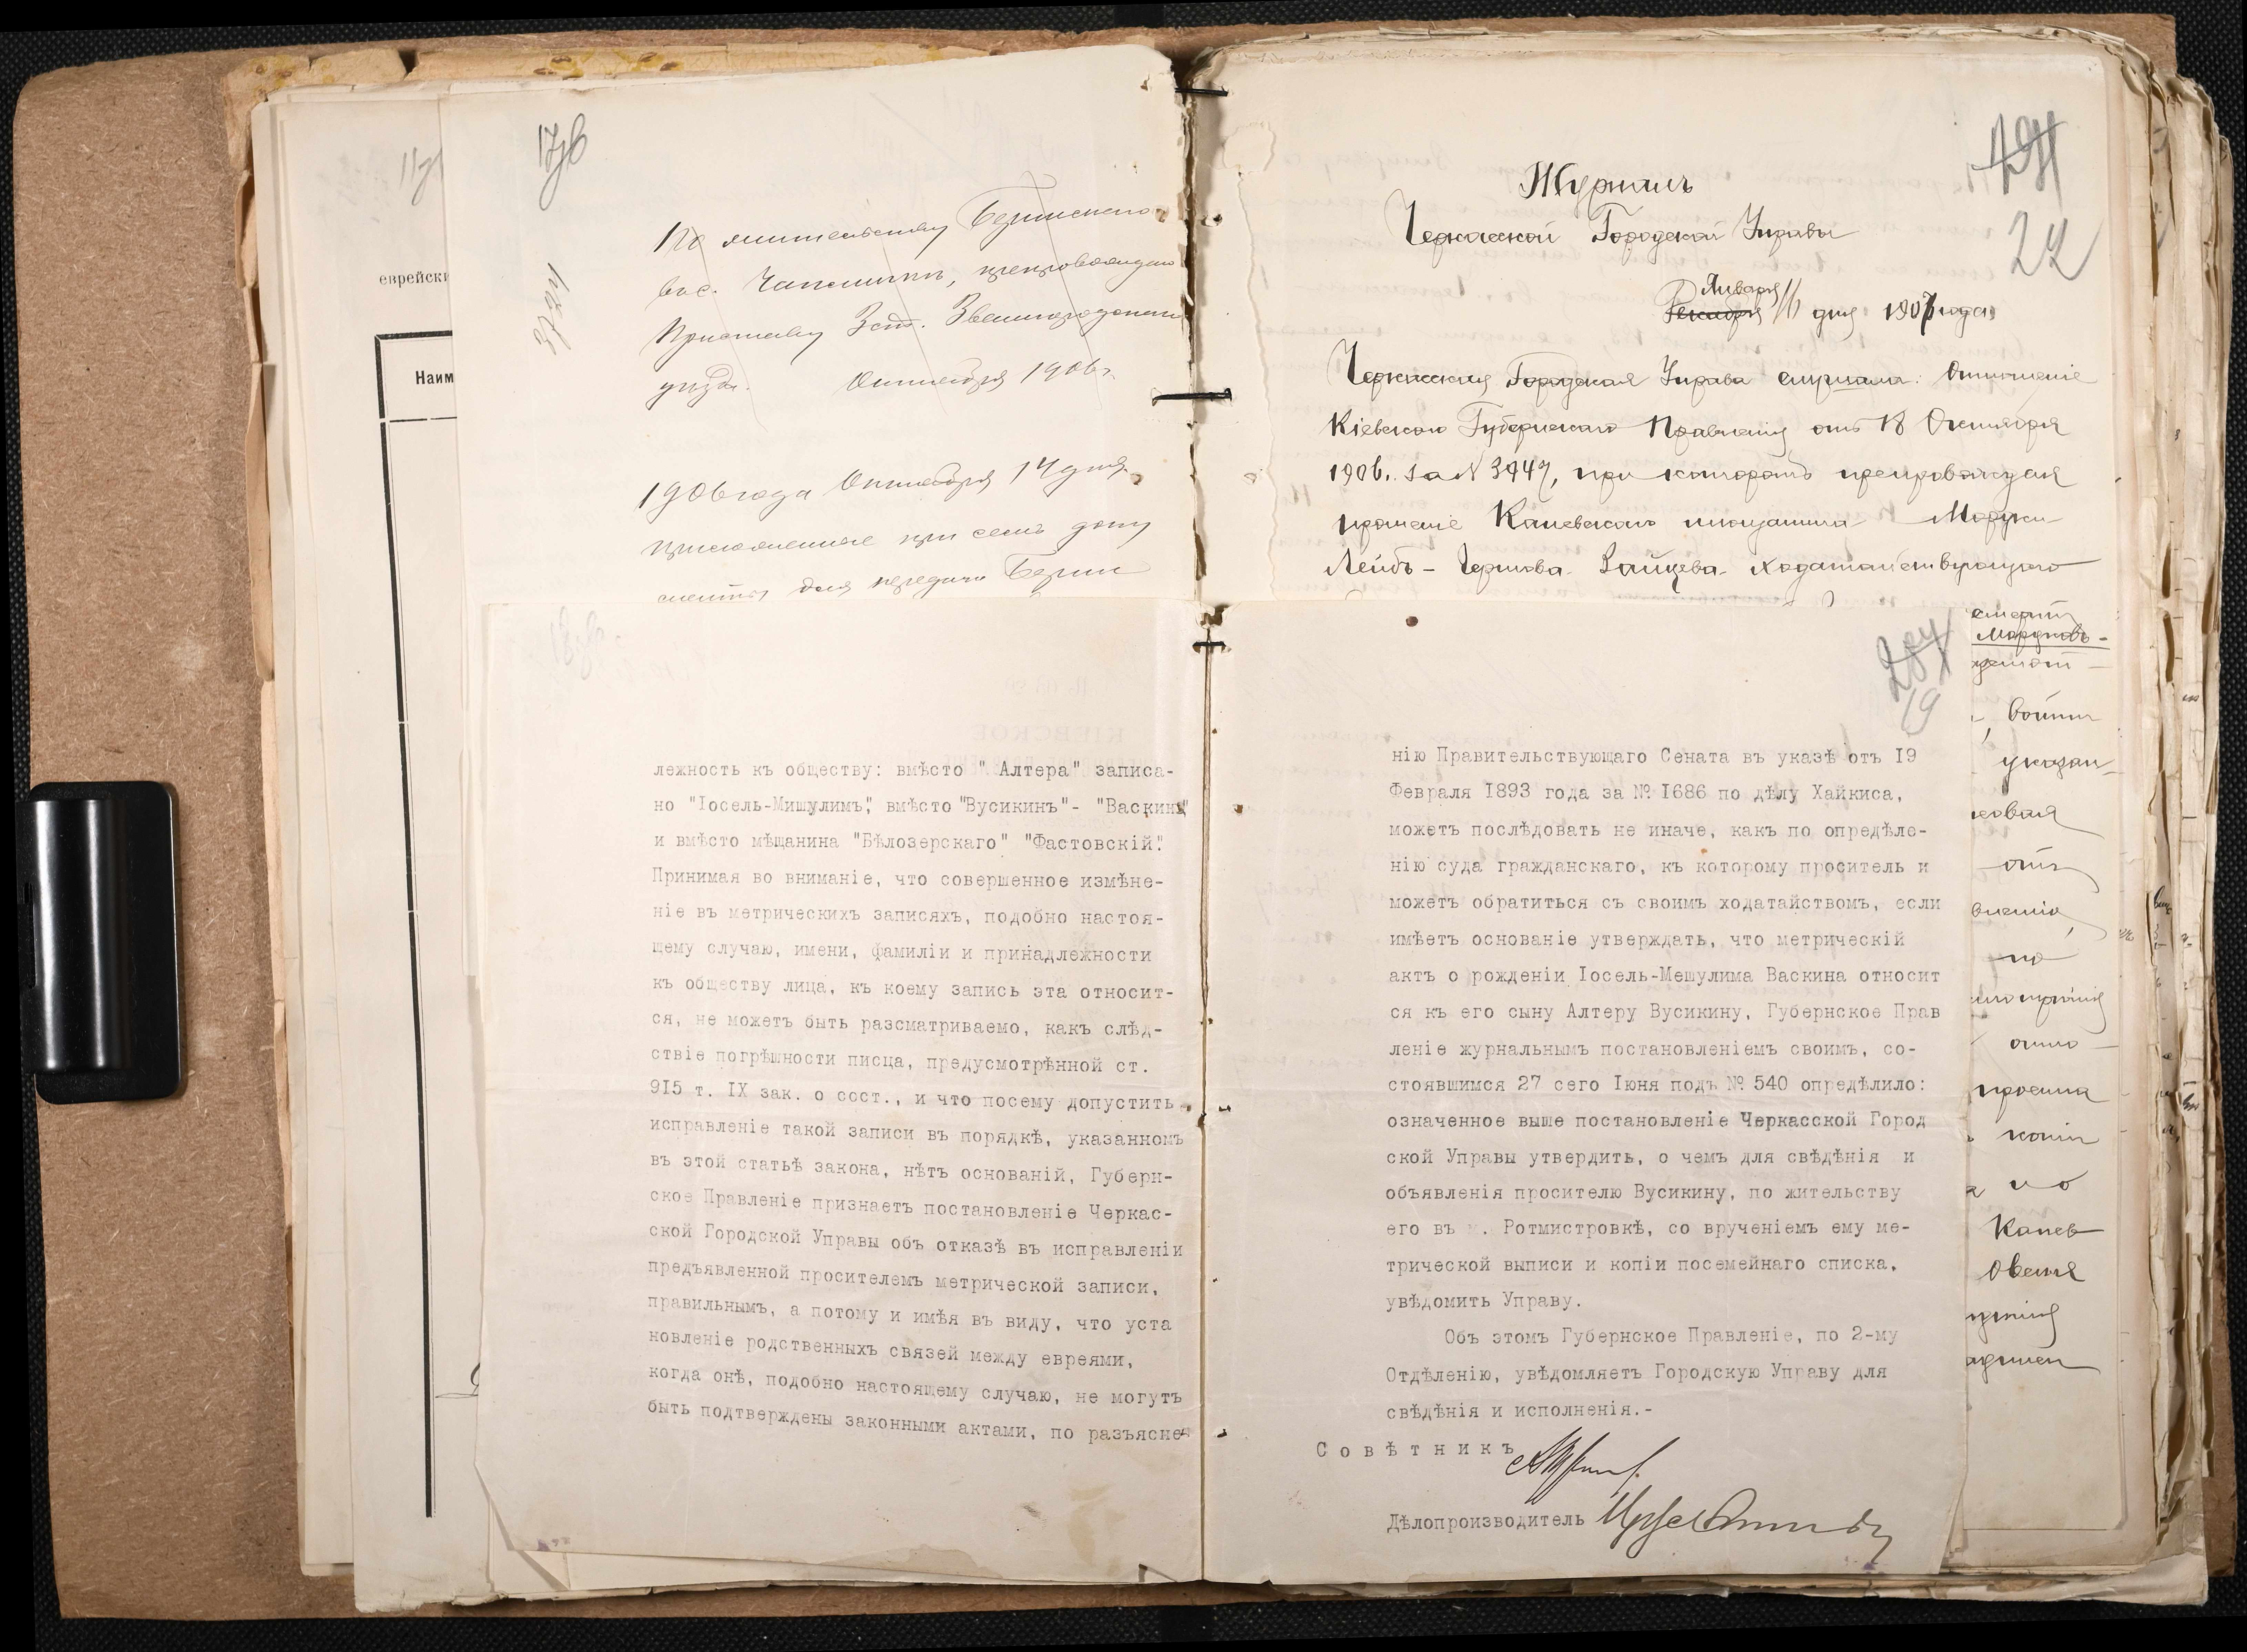 17об
По жительству
вис. Чапаинкъ, препровождаю
Приставу Зст. Звенигородскаго
уѣзда. Октября 1906 г.
1906 года Октября 14 дня
присложенные при семъ доку
менты для передачи
еврейски
Наим
24
22
Журналъ
Черкасской Городской Управы
Января
Декабря 11 дня 1907 года
Черкасская Городская Управа слушала: Отношеніе
Кіевскаго Губернскаго Правленія отъ 18 Октября
1906. за N 3447, при которомъ препровождая
прошеніе Каневскаго мѣщанина Мордки-
Лейбъ-Чернова Зайцева ходатайствующаго
лежность къ обществу: вмѣсто " Алтера" записа-
но "Іосель-Мишулимъ", вмѣсто "Вусикинъ"- "Васкинъ"
и вмѣсто мѣщанина "Бѣлозерскаго" "Фастовскій".
Принимая во вниманіе, что совершенное измѣне-
ніе въ метрическихъ записяхъ, подобно настоя-
щему случаю, имени, фамиліи и принадлежности
къ обществу лица, къ коему запись эта относит-
ся, не можетъ быть разсматриваемо, какъ слѣд-
ствіе погрѣшности писца, предусмотрѣнной ст.
915 т. IX зак. о сост., и что посему допустить
исправленіе такой записи въ порядкѣ, указанномъ
въ этой статьѣ закона, нѣтъ основаній, Губерн-
ское Правленіе признаетъ постановленіе Черкас-
ской Городской Управы объ отказѣ въ исправленіи
предъявленной просителемъ метрической записи,
правильнымъ, а потому и имѣя въ виду, что уста
новленіе родственныхъ связей между евреями,
когда онѣ, подобно настоящему случаю, не могутъ
быть подтверждены законными актами, по разъясне-
19
нію Правительствующаго Сената въ указѣ отъ I9
Февраля I893 года за № I686 по дѣлу Хайкиса,
можетъ послѣдовать не иначе, какъ по опредѣле-
нію суда гражданскаго, къ которому проситель и
можетъ обратиться съ своимъ ходатайствомъ, если
имѣетъ основаніе утверждать, что метрическій
актъ о рожденіи Іосель-Мешулима Васкина относит
ся къ его сыну Алтеру Вусикину, Губернское Прав
леніе журнальнымъ постановленіемъ своимъ, со-
стоявшимся 27 сего Іюня подъ № 540 опредѣлило:
означенное выше постановленіе Черкасской Город
ской Управы утвердить, о чемъ для свѣдѣнія и
объявленія просителю Вусикину, по жительству
его въ м. Ротмистровкѣ, со врученіемъ ему ме-
трической выписи и копіи посемейнаго списка,
увѣдомить Управу.
Объ этомъ Губернское Правленіе, по 2-му
Отдѣленію, увѣдомляетъ Городскую Управу для
свѣдѣнія и исполненія.-
Совѣтникъ
Дѣлопроизводитель
войти
указан-
отъ
по
копіи
Канев